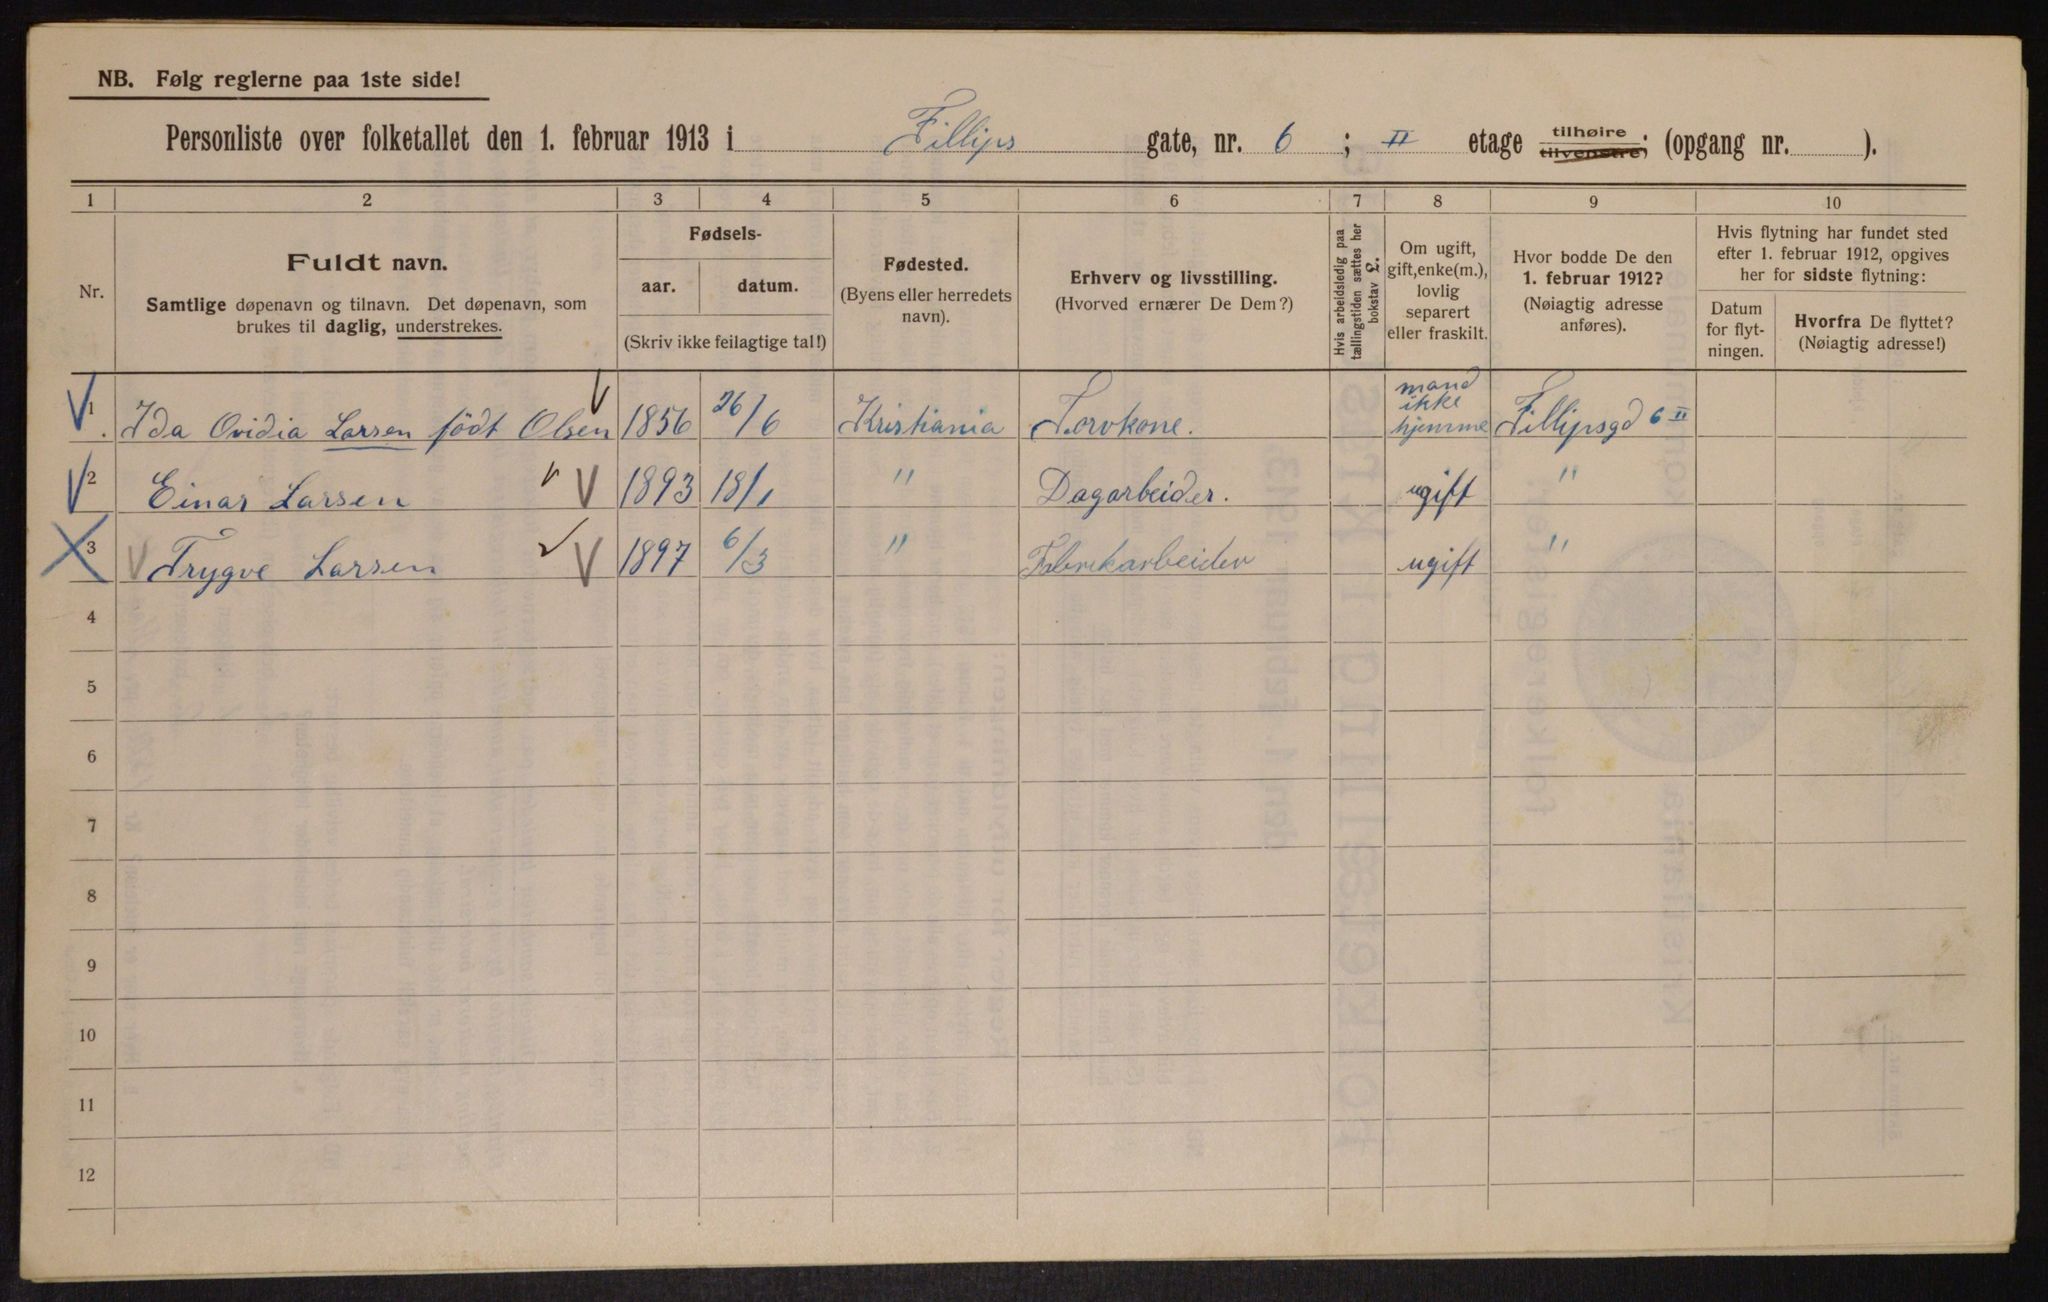 NB. Følg reglerne paa 1ste side!
Personliste over folketallet den 1. februar 1913 i Fillips gate, nr. 6 ; II etage tilhøire tilvenstre; (opgang nr. ).
1 2 3 4 5 6 7 8 9 10
Nr.
Fuldt navn.
Samtlige døpenavn og tilnavn. Det døpenavn, som
brukes til daglig, understrekes.
Fødsels-
aar. datum.
(Skriv ikke feilagtige tal!)
Fødested.
(Byens eller herredets
navn).
Erhverv og livsstilling.
(Hvorved ernærer De Dem?)
Hvis arbeidsledig paa
tællingstiden sættes her
bokstav L.
Om ugift,
gift, enke(m.),
lovlig
separert
eller fraskilt.
Hvor bodde De den
1. februar 1912?
(Nøiagtig adresse
anføres).
Hvis flytning har fundet sted
efter 1. februar 1912, opgives
her for sidste flytning:
Datum
for flyt-
ningen.
Hvorfra De flyttet?
(Nøiagtig adresse!)
1 Ida Ovidia Larsen födt Olsen 1856 26/6 Kristiania Torvkone. mand ikke hjemme Fillipsgd 6 II
2 Einar Larsen 1893 18/1 " Dagarbeider. ugift "
3 Trygve Larsen 1897 6/3 " Fabrikarbeider ugift "
4
5
6
7
8
9
10
11
12